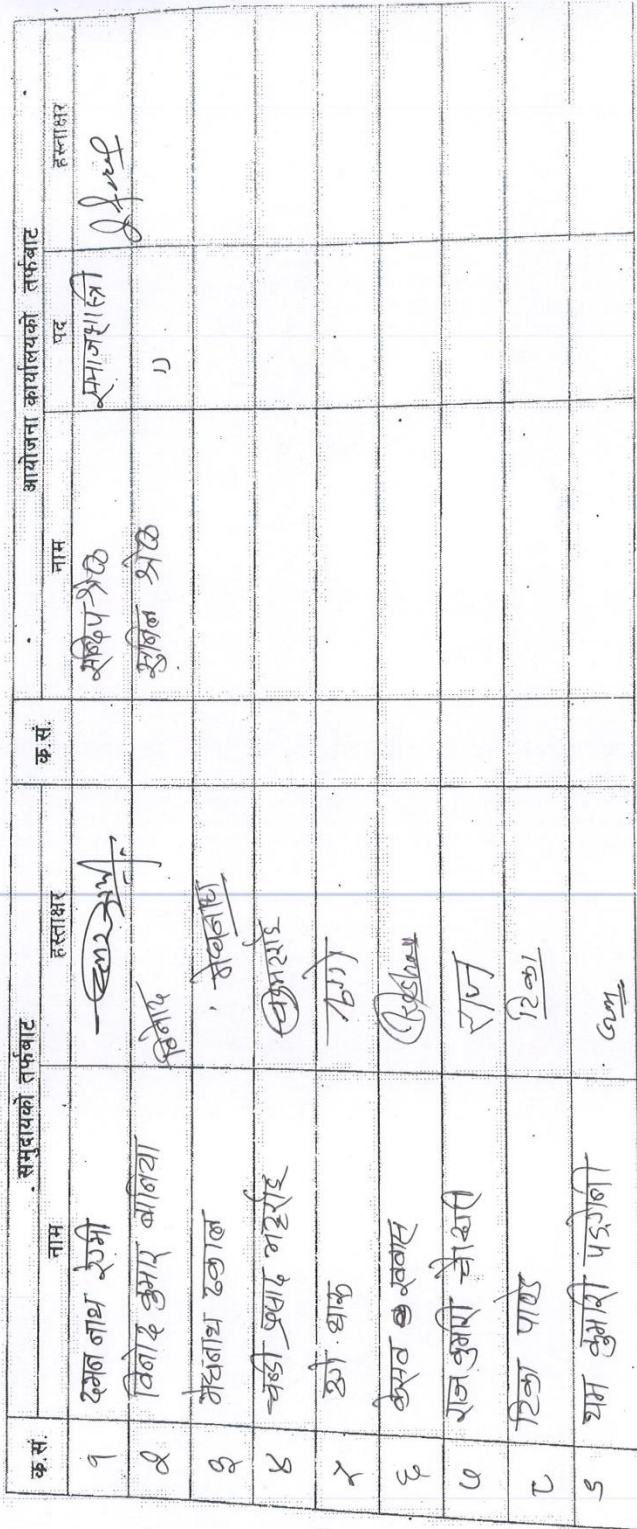 समुदायको तर्फबाट आयोजना कार्यालयको तर्फबाट
क.सं. नाम हस्ताक्षर क.सं. नाम पद हस्ताक्षर
१ दमन नाथ रेग्मी सन्दिप श्रेष्ठ समाजशास्त्री
२ विनोद कुमार बानिया विनोद सुनिल श्रेष्ठ ”
३ मेघनाथ ढकाल मेघनाथ
४ चण्डी प्रसाद भट्टराई
५
६ केसव खवास
७ राज कुमारी चौधरी राज
८ टिका पाण्डे टिका
९ यम कुमारी पडंगेनी यम